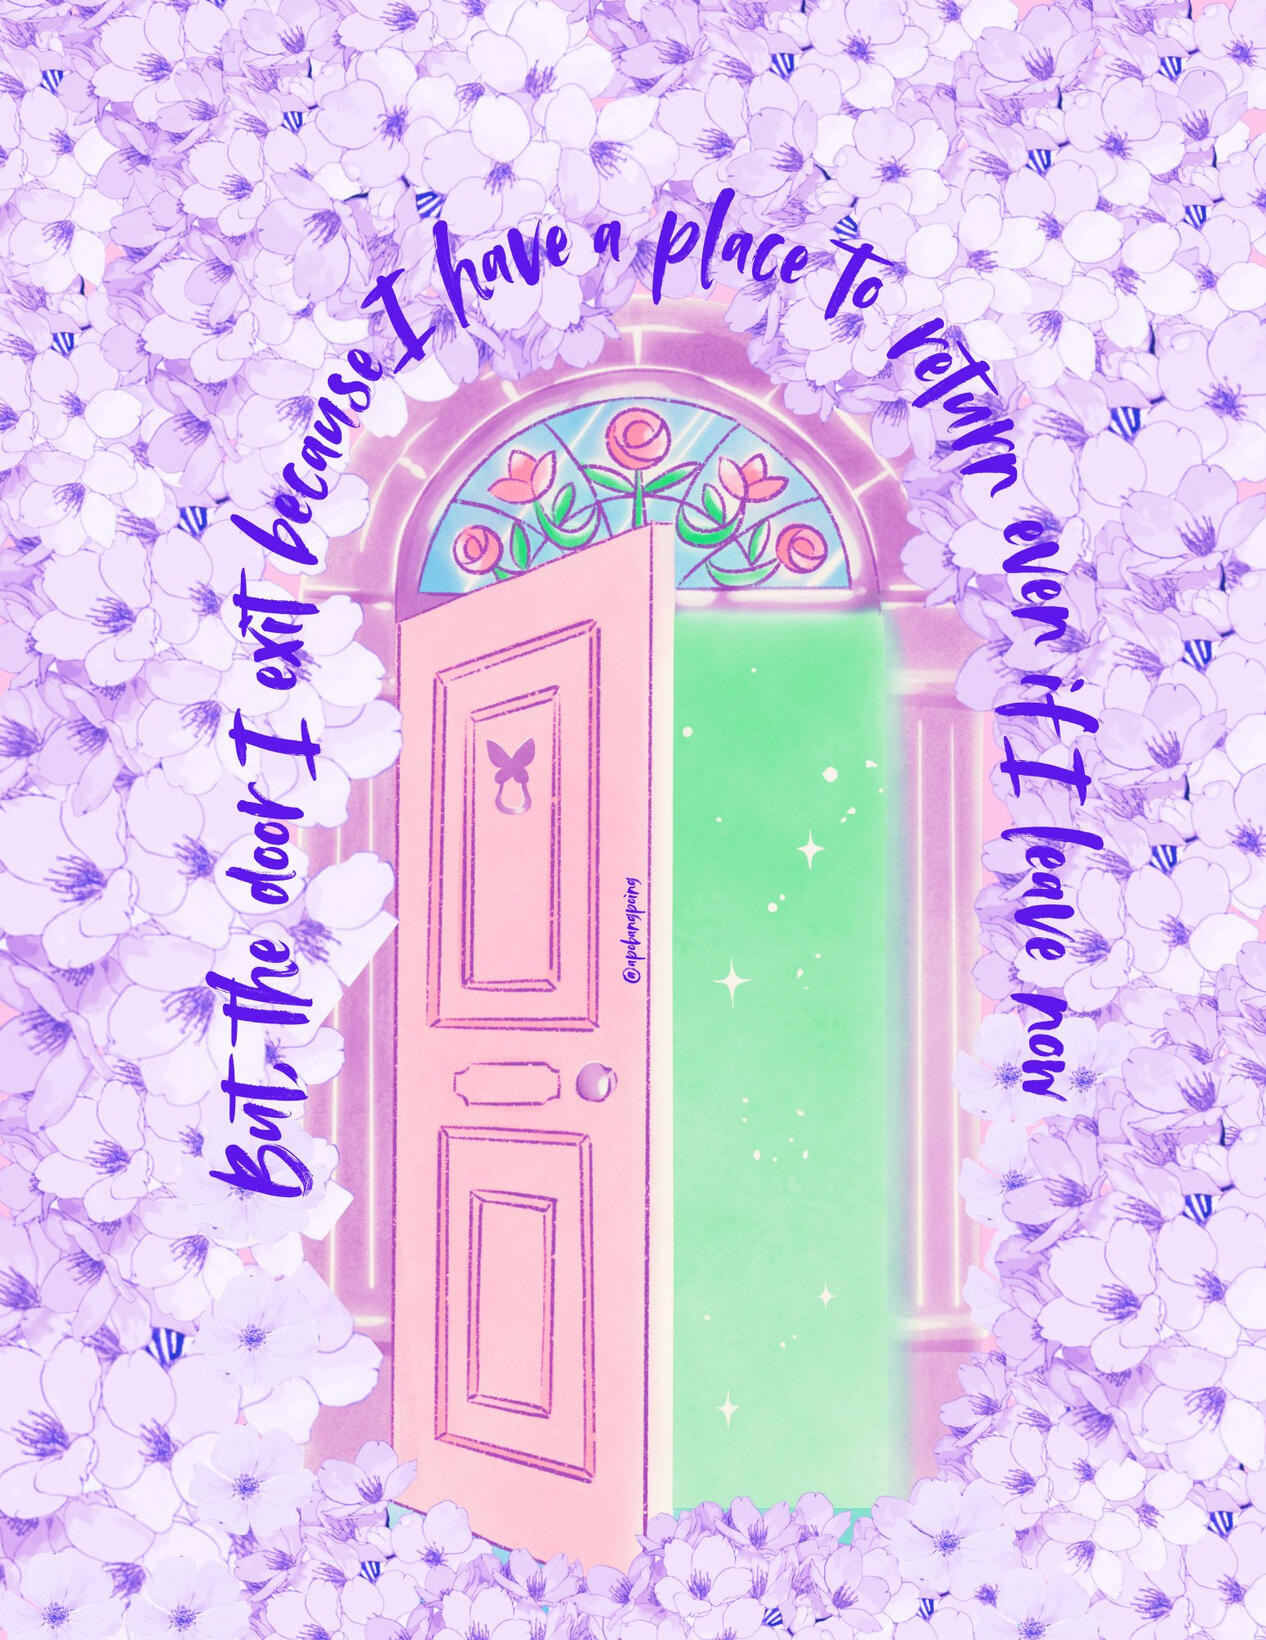 But, the door I exit because I have a place to return even if I leave now
@apobangpoing